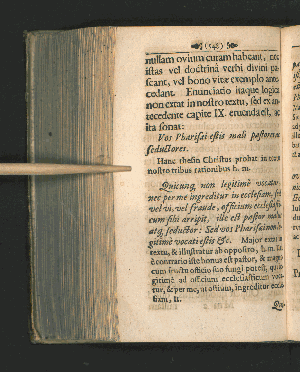 (548)
nullam ovium curam habeant, nec
istas vel doctrinâ verbi divini pa-
scant, vel bono vitæ exemplo ante-
cedant. Enunciatio itaque logica
non extat in nostro textu, sed ex an-
tecedente capite IX. eruenda est, ac
ita sonat:
Vos Pharisæi estis mali pastores &
seductores.
Hanc thesin Christus probat in textu
nostro tribus rationibus h. m.
Quicunq; non legitimè vocatur
nec per me ingreditur in ecclesiam, sed
vel vi, vel fraude, officium ecclesiasti-
cum sibi arripit, ille est pastor malus
atq; seductor: Sed vos Pharisæi non le-
gitimè vocati estis &c. Major extat in
textu, & illustratur ab opposito, h. m.
è contrario iste bonus est pastor, & magnâ
cum fructu officio suo fungi potest, qui le-
gitimè ad officium ecclesiasticum voca-
tur, & per me, ut ostium, ingreditur eccle-
siam, II.